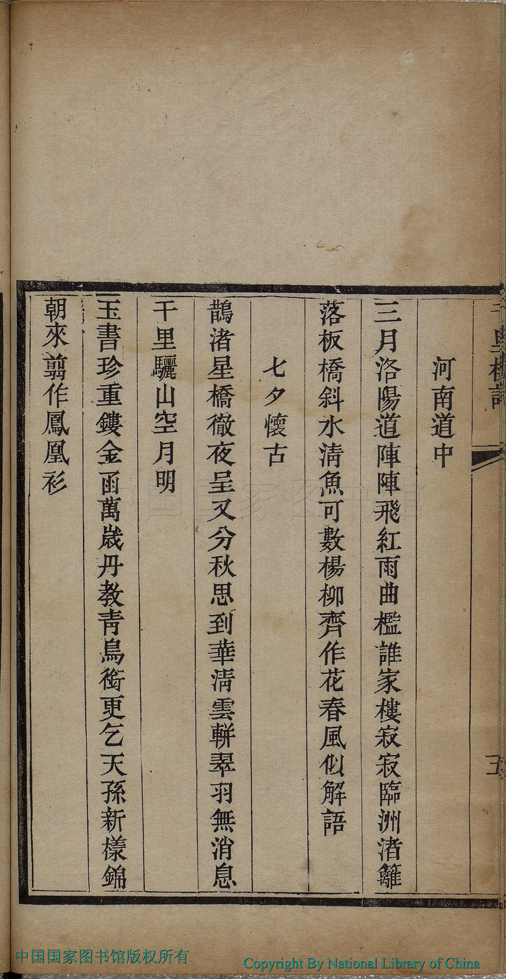 河南道中
三月洛陽道陣陣飛紅雨曲檻誰家樓寂寂臨洲渚雝
落板橋斜水清魚可數楊柳齊作花春風似解語
七夕懷古
鵲渚星橋徹夜呈又分秋思到華清雲輧翠羽無消息
千里驪山空月明
玉書珍重鏤金函萬歲丹教青鳥銜更乞天孫新樣錦
朝來翦作鳳凰衫
中国国家图书馆版权所有
Copyright By National Library of China